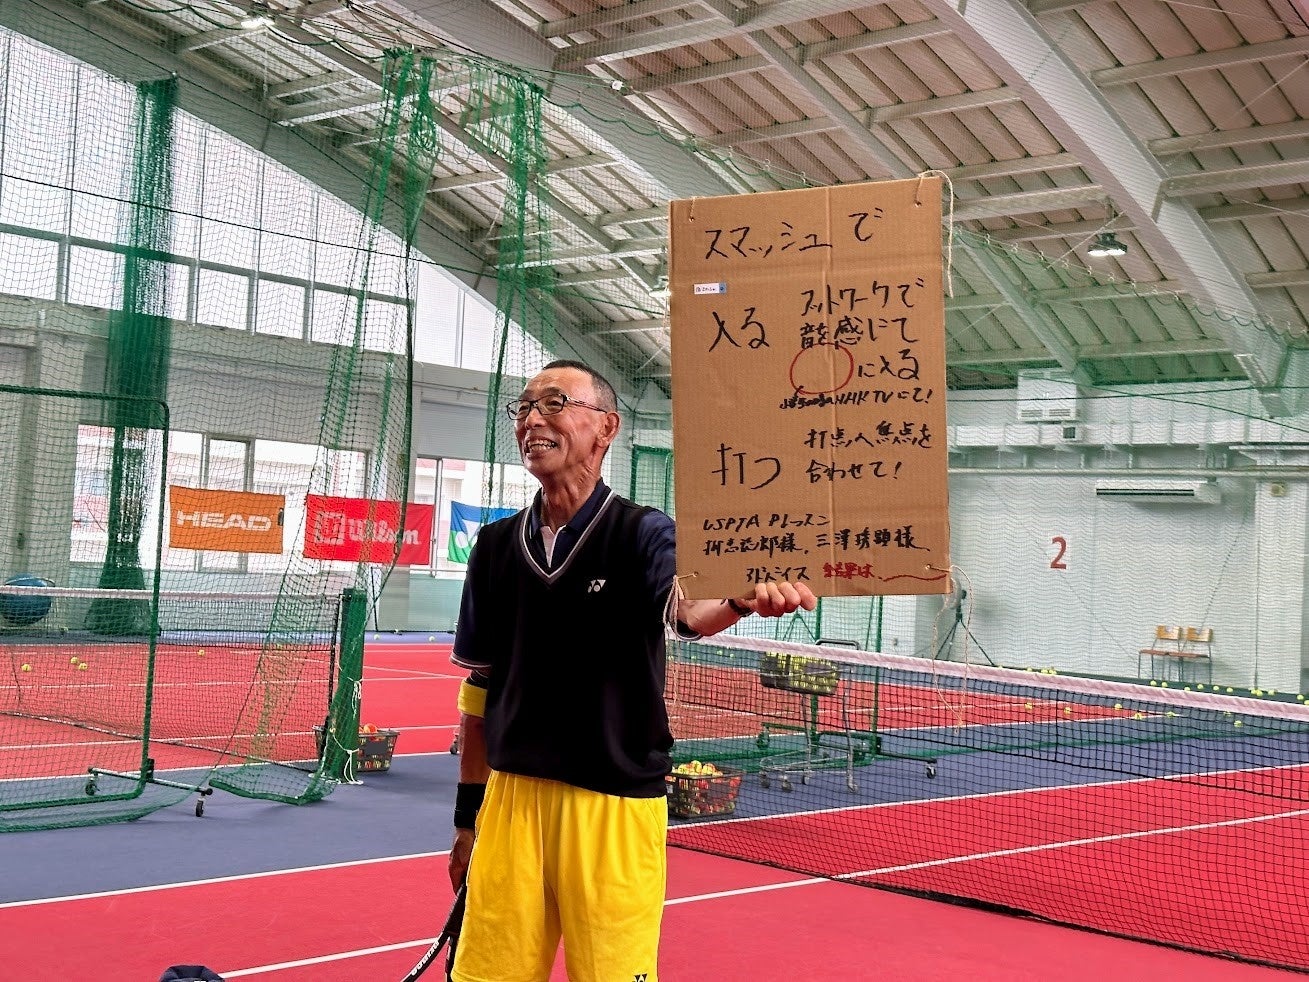 スマッシュで
入る
フットワークで
龍感にて
に入る
NHK TVにて!
打つ
打点へ焦点を
合わせて!
USPTA Pレッスン
様、三澤 様、
アドバイス 結果は、
HEAD
Wilson
2